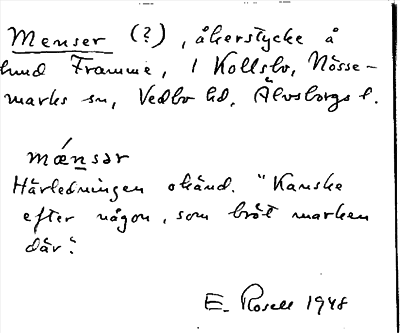 Menser (?), åkerstycke å
hmd Framme, i Kollsbo, Nösse-
marks sn, Vedbo hd, Älvsborgs l.
mǽnsər
Härledningen okänd. "Kanske
efter någon, som bröt marken
där".
E. Rosell 1948